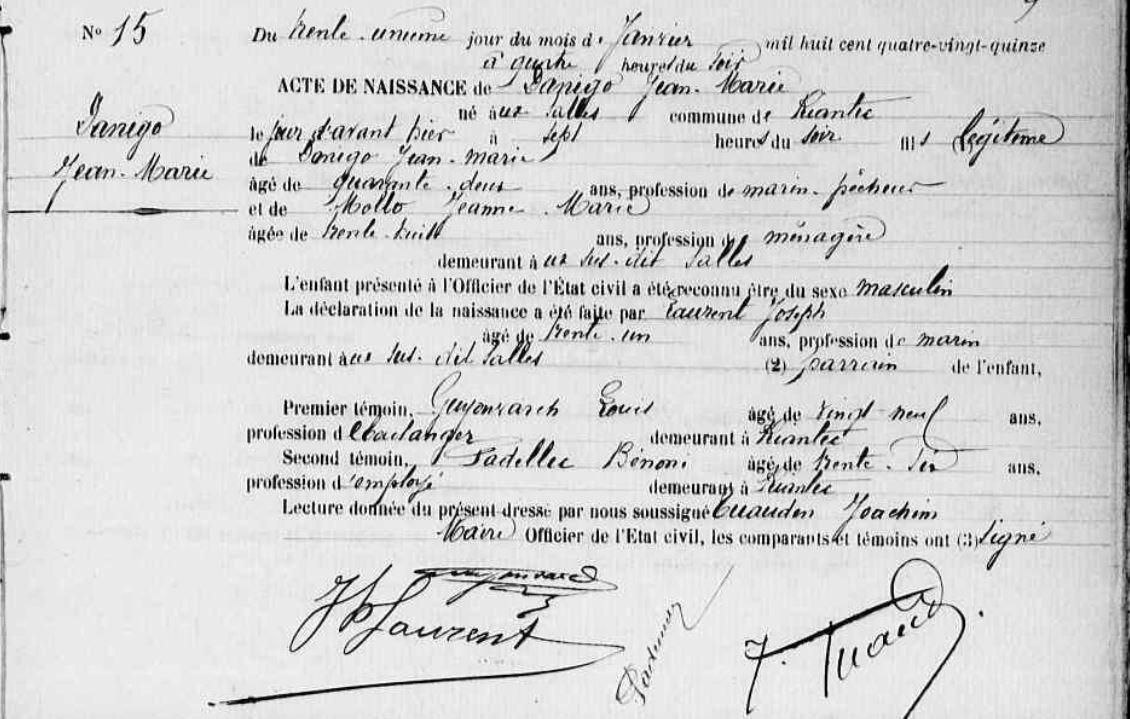 N° 15
Du trente-unième jour du mois de Janvier mil huit cent quatre-vingt-quinze
à quatre heures du soir
ACTE DE NAISSANCE de Danigo Jean-Marie
né aux Salles commune de Riantec
Danigo
Jean-Marie
le jour d'avant hier à sept heures du soir fils légitime
de Danigo Jean-marie
âgé de quarante-deux ans, profession de marin-pêcheur
et de Mollo Jeanne-Marie
âgée de trente-huit ans, profession de ménagère
demeurant aux sus-dit Salles
L'enfant présenté à l'Officier de l'État civil a été reconnu être du sexe masculin
La déclaration de la naissance a été faite par Laurent Joseph
âgé de trente-un ans, profession de marin
demeurant aux sus-dit Salles (2) parrain de l'enfant,
Premier témoin, Guyonvarch Louis âgé de vingt-neuf ans,
profession de boulanger demeurant à Riantec
Second témoin, Padellec Bénoni âgé de trente-six ans,
profession d'employé demeurant à Riantec
Lecture donnée du présent dressé par nous soussigné Joachim
Maire Officier de l'Etat civil, les comparants et témoins ont (3) signé
Laurent